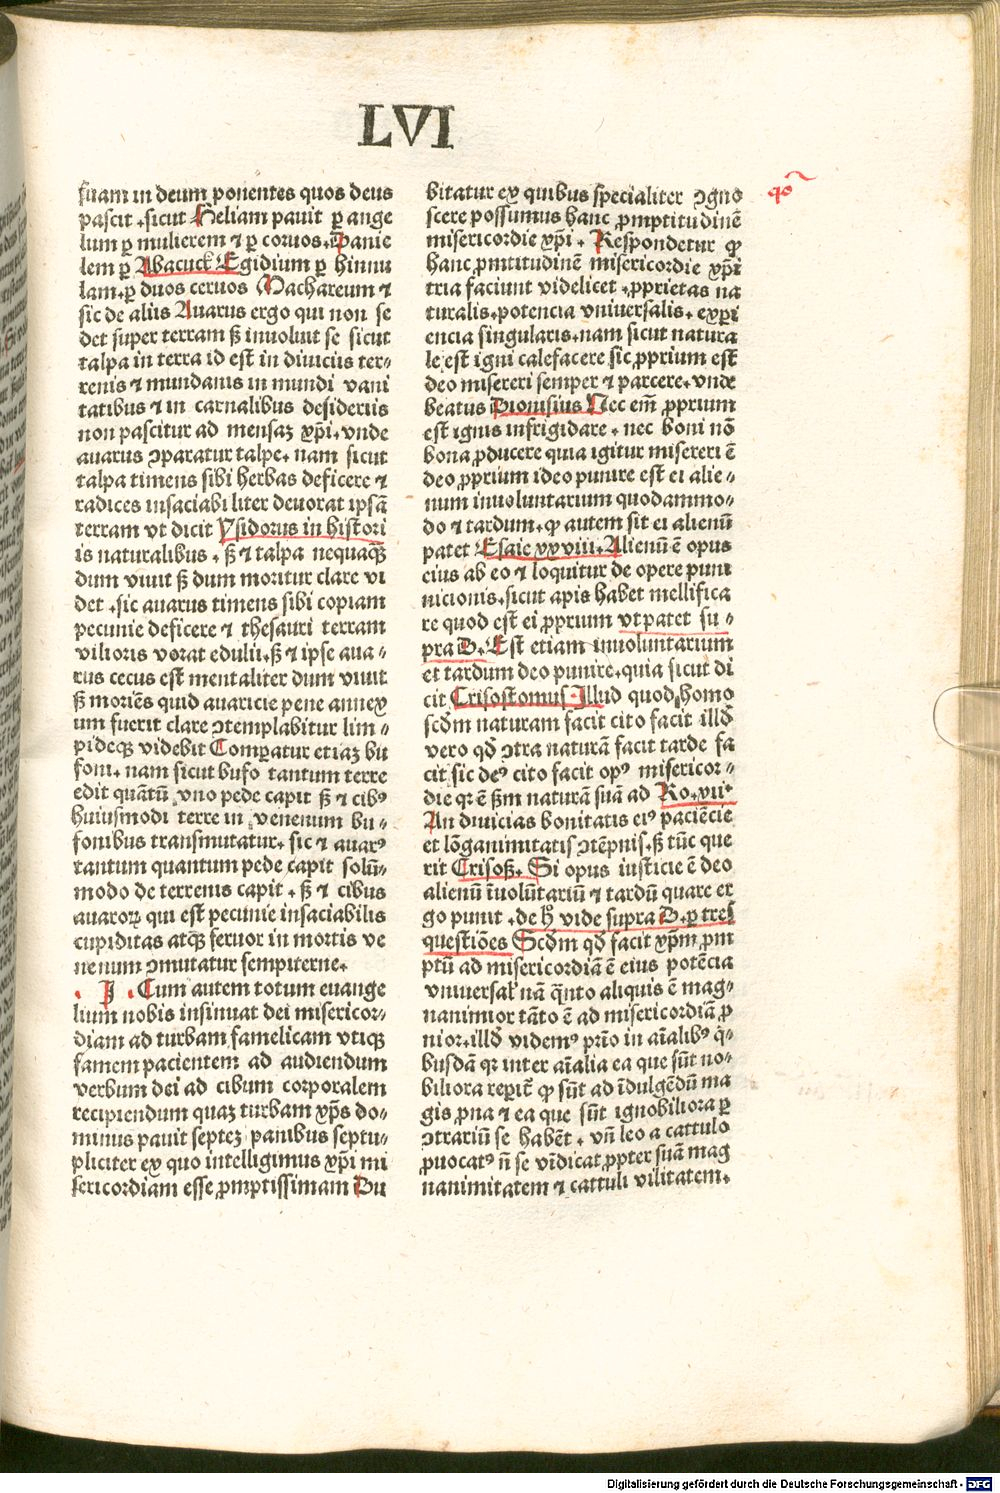 LVI
suam in deum ponentes quos deus
pascit .sicut Heliam pauit ꝑ ange
lum ꝑ mulierem ⁊ ꝑ coruos. Danie
lem ꝑ Abacuck Egidium ꝑ hinnu
lam.ꝑ duos ceruos Machareum ⁊
sic de aliis Auarus ergo qui non se
det super terram sꝫ inuoluit se sicut
talpa in terra id est in diuiciis ter⸗
renis ⁊ mundanis in mundi vani
tatibus ⁊ in carnalibus desideriis
non pascitur ad mensaꝫ xp̄i.vnde
auarus ↄparatur talpe. nam sicut
talpa timens sibi herbas deficere ⁊
radices insaciabiliter deuorat ipsā
terram vt dicit Ysidorus in histori
is naturalibus . sꝫ ⁊ talpa nequaq̄ꝫ
dum viuit sꝫ dum moritur clare vi
det .sic auarus timens sibi copiam
pecunie deficere ⁊ thesauri terram
vilioris vorat edulii.sꝫ ⁊ ipse aua⸗
rus cecus est mentaliter dum viuit
sꝫ moriēs quid auaricie pene annex
um fuerit clare ↄtemplabitur lim⸗
pideqꝫ videbit Comꝑatur etiaꝫ bu
foni. nam sicut bufo tantum terre
edit quātū vno pede capit sꝫ ⁊ cibꝰ
huiusmodi terre in venenum bu⸗
fonibus transmutatur. sic ⁊ auarꝰ
tantum quantum pede capit solū⸗
modo de terrenis capit . sꝫ ⁊ cibus
auaroꝝ qui est pecunie insaciabilis
cupiditas atqꝫ feruor in mortis ve
nenum ↄmutatur sempiterne.
. J .Cum autem totum euange
lium nobis insinuat dei misericor⸗
diam ad turbam famelicam vtiqꝫ
famem pacientem ad audiendum
verbum dei ad cibum corporalem
recipiendum quaꝫ turbam xp̄s do⸗
minus pauit septeꝫ panibus septu⸗
pliciter ex quo intelligimus xp̄i mi
sericordiam esse ꝓmptissimam Du
bitatur ex quibus specialiter ↄgno
scere possumus hanc ꝓmptitudinē
misericordie xp̄i . Respondetur ꝙ
hanc ꝓmtitudinē misericordie xp̄i
tria faciunt videlicet .ꝓprietas na
turalis.potencia vniuersalis. exꝑi
encia singularis.nam sicut natura
le est igni calefacere sic ꝓprium est
deo misereri semper ⁊ parcere.vnde
beatus Dionisius Nec em̄ ꝓprium
est ignis infrigidare . nec boni nō
bona ꝓducere quia igitur misereri ē
deo ꝓprium ideo punire est ei alie⸗
num inuoluntarium quodammo⸗
do ⁊ tardum.ꝙ autem sit ei alienū
patet Esaie xxviii. Alienū ē opus
eius ab eo ⁊ loquitur de opere puni
nicionis.sicut apis habet mellifica
re quod est ei ꝓprium vt patet su⸗
pra D. Est etiam inuoluntarium
et tardum deo punire.quia sicut di
cit Crisostomus. Illud quod homo
scd̄m naturam facit cito facit illd̄
vero qd̄ ↄtra naturā facit tarde fa
cit sic deꝰ cito facit opꝰ misericor⸗
die qꝛ ē sꝫm naturā suā ad Ro.vii.
An diuicias bonitatis eiꝰ paciēcie
et lōganimitatis ↄtēpnis.sꝫ tūc que
rit Crisoꝫ. Si opus iusticie ē deo
alienū īuolūtariū ⁊ tardū quare er
go punit .de h̄ vide supra D.ꝑ tres
questiōes Scd̄m qd̄ facit xp̄m ꝓm
ptū ad misericordiā ē eius potēcia
vniuersal̄ nā q̄nto aliquis ē mag⸗
nanimior tāto ē ad misericordiā ꝓ
nior.illd̄ videmꝰ prīo in aīalibꝰ q̄⸗
busdā qꝛ inter aīalia ea que sūt no⸗
biliora reꝑit̄ ꝙ sūt ad īdulgēdū ma
gis ꝓna ⁊ ea que sūt ignobiliora ꝑ
ↄtrariū se habēt . vn̄ leo a cattulo
ꝓuocatꝰ n̄ se vīdicat ꝓpter suā mag
nanimitatem ⁊ cattuli vilitatem.
qō
Digitalisierung gefördert durch die Deutsche Forschungsgemeinschaft - DFG